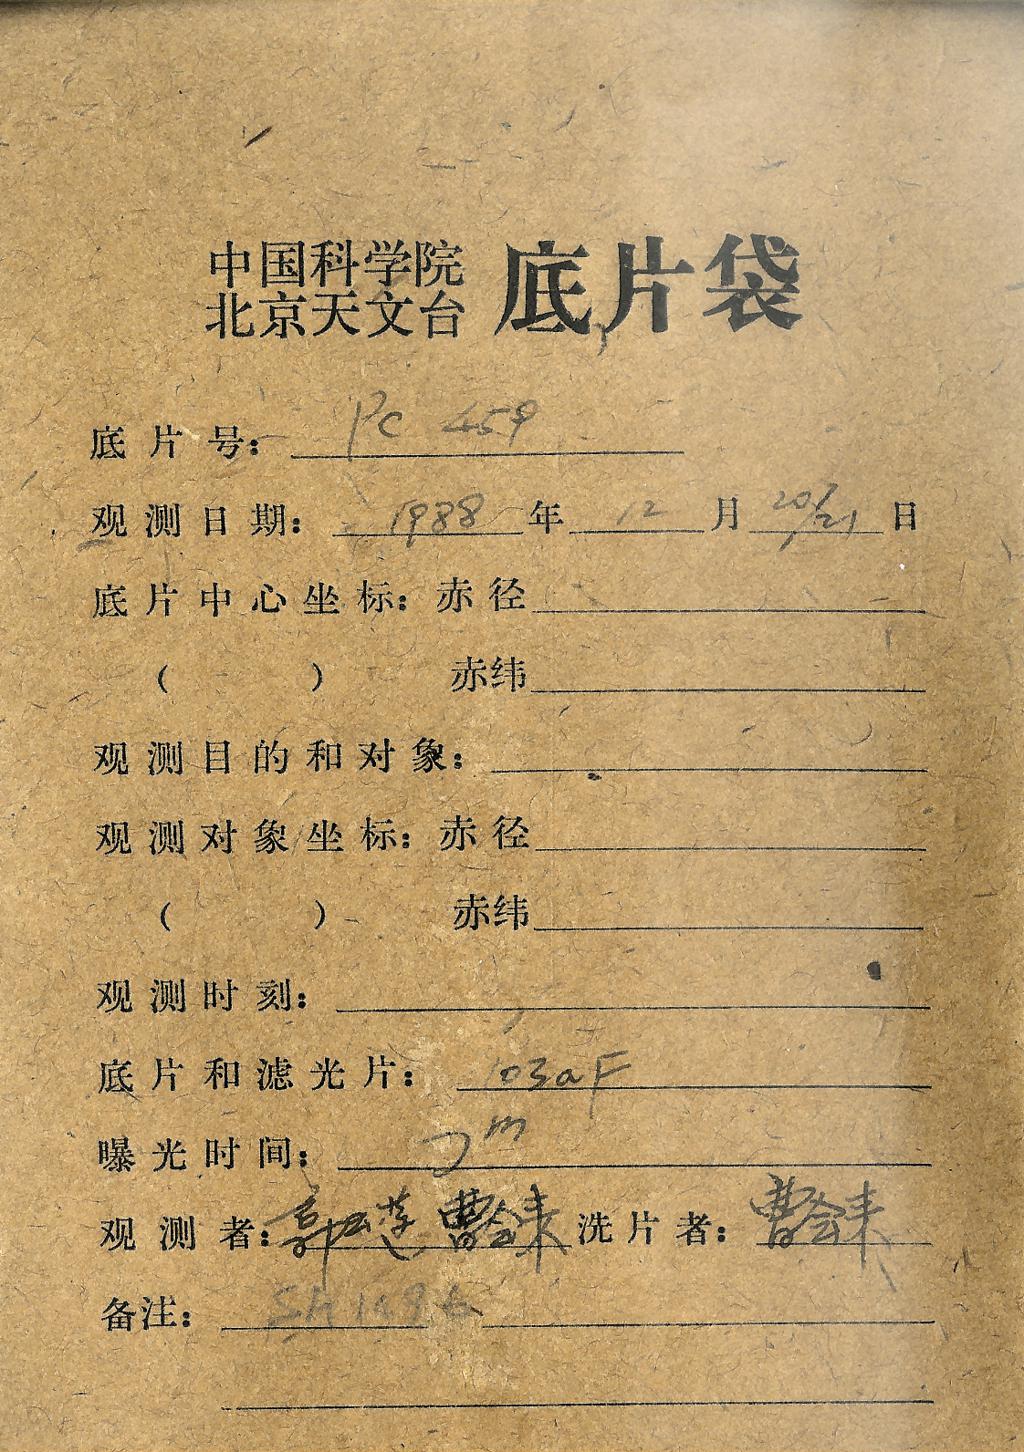 中国科学院
北京天文台 底片袋
底片号: PC 459
观测日期: 1988 年 12 月 20/21 日
底片中心坐标: 赤径
( ) 赤纬
观测目的和对象:
观测对象坐标: 赤径
( ) 赤纬
观测时刻:
底片和滤光片: 103aF
曝光时间: m
观测者: 郭 莲 曹 洗片者: 曹
备注: